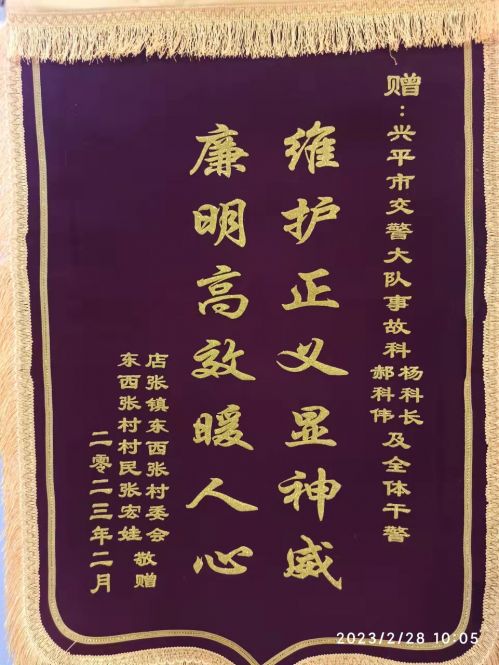 赠：兴平市交警大队事故科杨科长郝科伟及全体干警
维护正义显神威
廉明高效暖人心
店张镇东西张村委会
东西张村村民张宏娃
敬赠
二零二三年二月
2023/2/28 10:05